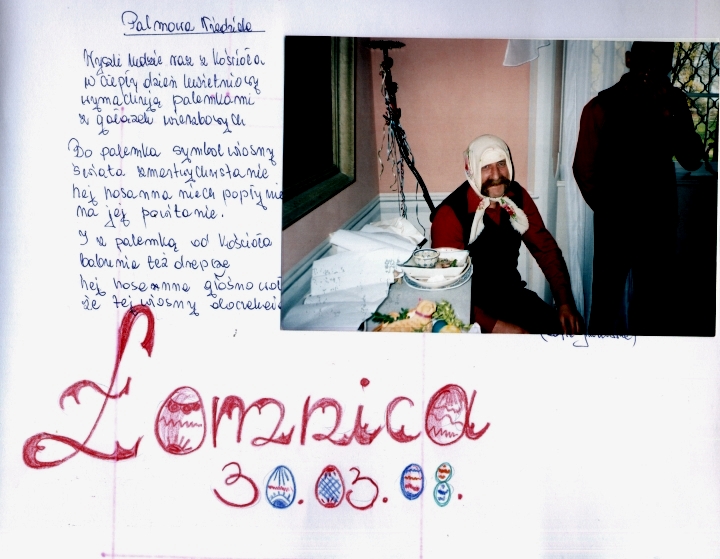 Palmowa Niedziela
Wyszli ludzie raz z kościoła
w ciepły dzień kwietniowy
wymachują palemkami
z gałązek wierzbowych
Bo palemka symbol wiosny
świata zmartwychwstanie
hej hosanna niech popłynie
na jej powitanie.
I z palemką od kościoła
babunia też drepcze
hej hosanna głośno woł
że tej wiosny
Łomnica
30.03.08.